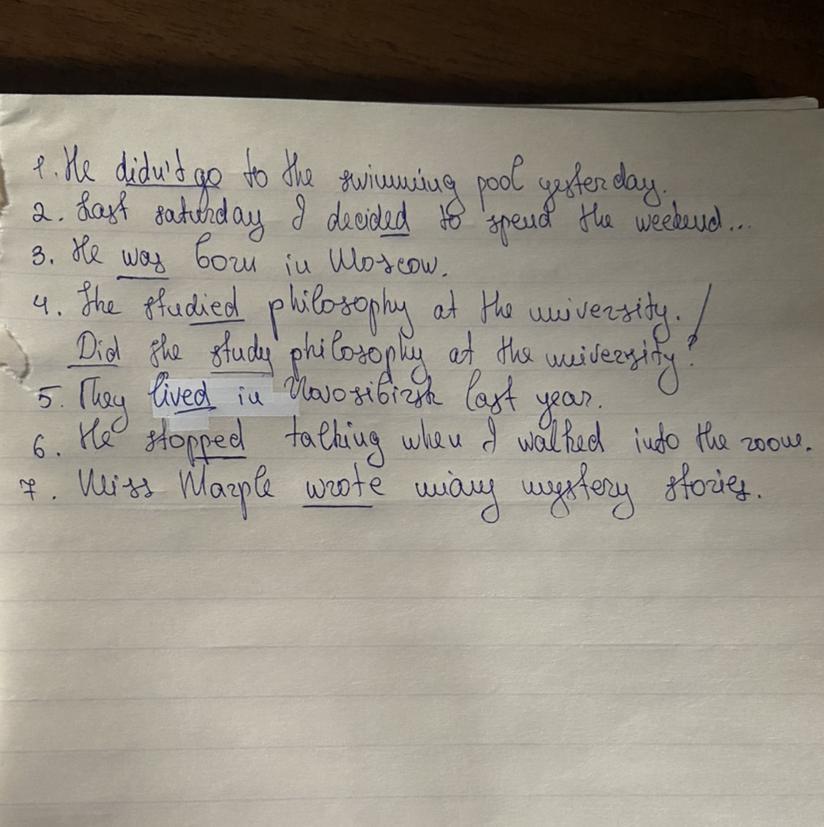 1. He didn't go to the swimming pool yesterday.
2. Last saturday I decided to spend the weekend...
3. He was born in Moscow.
4. She studied philosophy at the university. /
Did she study philosophy at the university?
5. They lived in Novosibirsk last year.
6. He stopped talking when I walked into the room.
7. Miss Marple wrote many mystery stories.